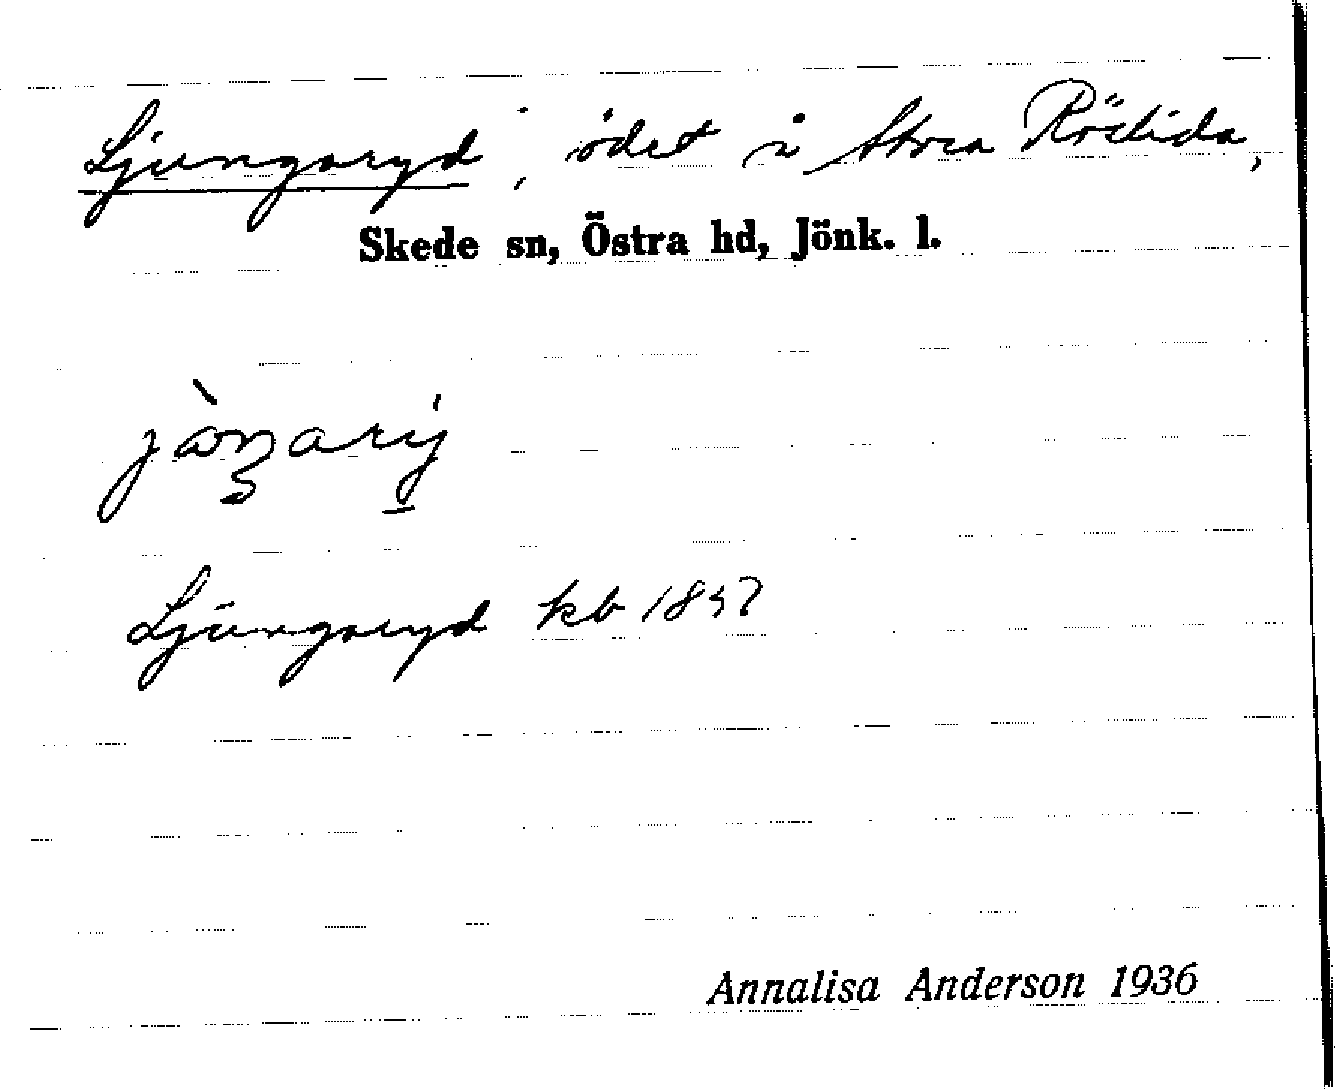 Ljungaryd, ödet i Stora Röslida,
Skede sn, Östra hd, Jönk. l.
Ljungaryd kb 1857
Annalisa Anderson 1936